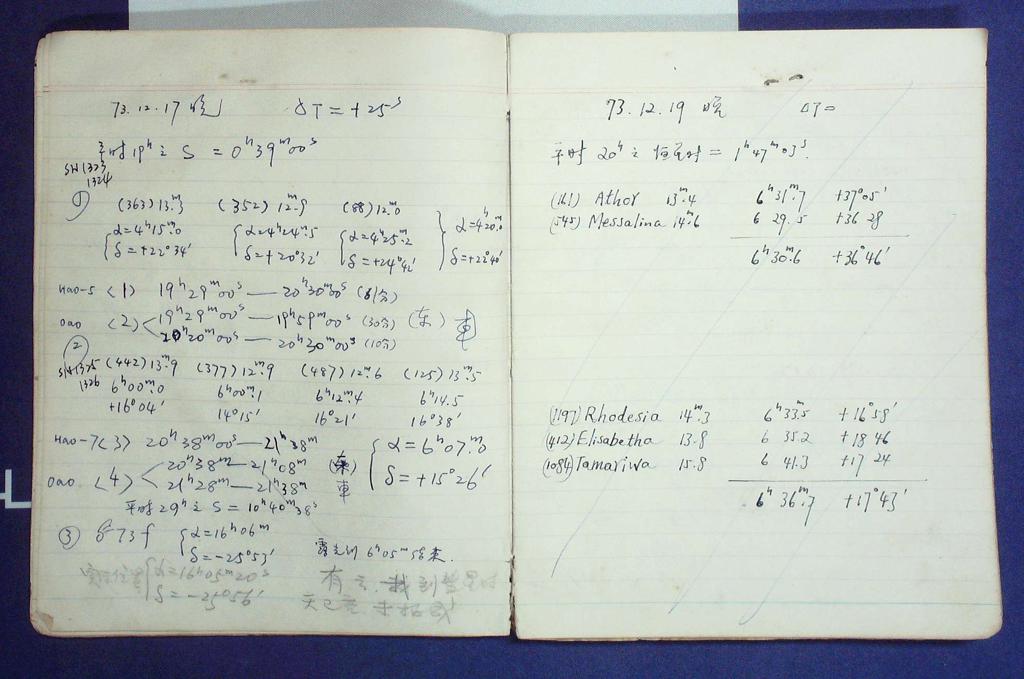 73.12.17 晚 ΔT = +25ˢ
平时19ʰ之 S = 0ʰ39ᵐ00ˢ
SH 1323
1324
① (363) 13ᵐ.3 (352) 12ᵐ.9 (88) 12ᵐ.0
α=4ʰ15ᵐ.0 α=4ʰ24ᵐ.5 α=4ʰ25ᵐ.2 α=4ʰ20ᵐ.0
δ=+22°34′ δ=+20°32′ δ=+24°42′ δ=+22°40′
(1) 19ʰ29ᵐ00ˢ — 20ʰ30ᵐ00ˢ (61分)
oao (2) 19ʰ29ᵐ00ˢ — 19ʰ59ᵐ00ˢ (30分) (东) 車
20ʰ20ᵐ00ˢ — 20ʰ30ᵐ00ˢ (10分)
②
SH 1325 (442) 13ᵐ.9 (377) 12ᵐ.9 (487) 12ᵐ.6 (125) 13ᵐ.5
1326 6ʰ00ᵐ.0 6ʰ00ᵐ.1 6ʰ12ᵐ.4 6ʰ14.5
+16°04′ 14°15′ 16°21′ 16°38′
(3) 20ʰ38ᵐ00ˢ — 21ʰ38ᵐ α=6ʰ07ᵐ.0
oao (4) 20ʰ38ᵐ — 21ʰ08ᵐ 車 δ=+15°26′
21ʰ28ᵐ — 21ʰ38ᵐ
平时29ʰ之 S = 10ʰ40ᵐ38ˢ
③ 73f α=16ʰ06ᵐ
δ=-25°53′ 6ʰ05ᵐ
α=16ʰ05ᵐ20ˢ 有云
δ=-25°56′ 天已亮
73.12.19 晚 ΔT=
平时 20ʰ之恒星时 = 1ʰ47ᵐ03ˢ.
(161) Athor 13ᵐ.4 6ʰ31ᵐ.7 +37°05′
(545) Messalina 14ᵐ.6 6 29.5 +36 28
6ʰ30ᵐ.6 +36°46′
(1197) Rhodesia 14ᵐ.3 6ʰ33.5 +16°58′
(412) Elisabetha 13.8 6 35.2 +18 46
(1084) Tamariwa 15.8 6 41.3 +17 24
6ʰ36ᵐ.7 +17°43′